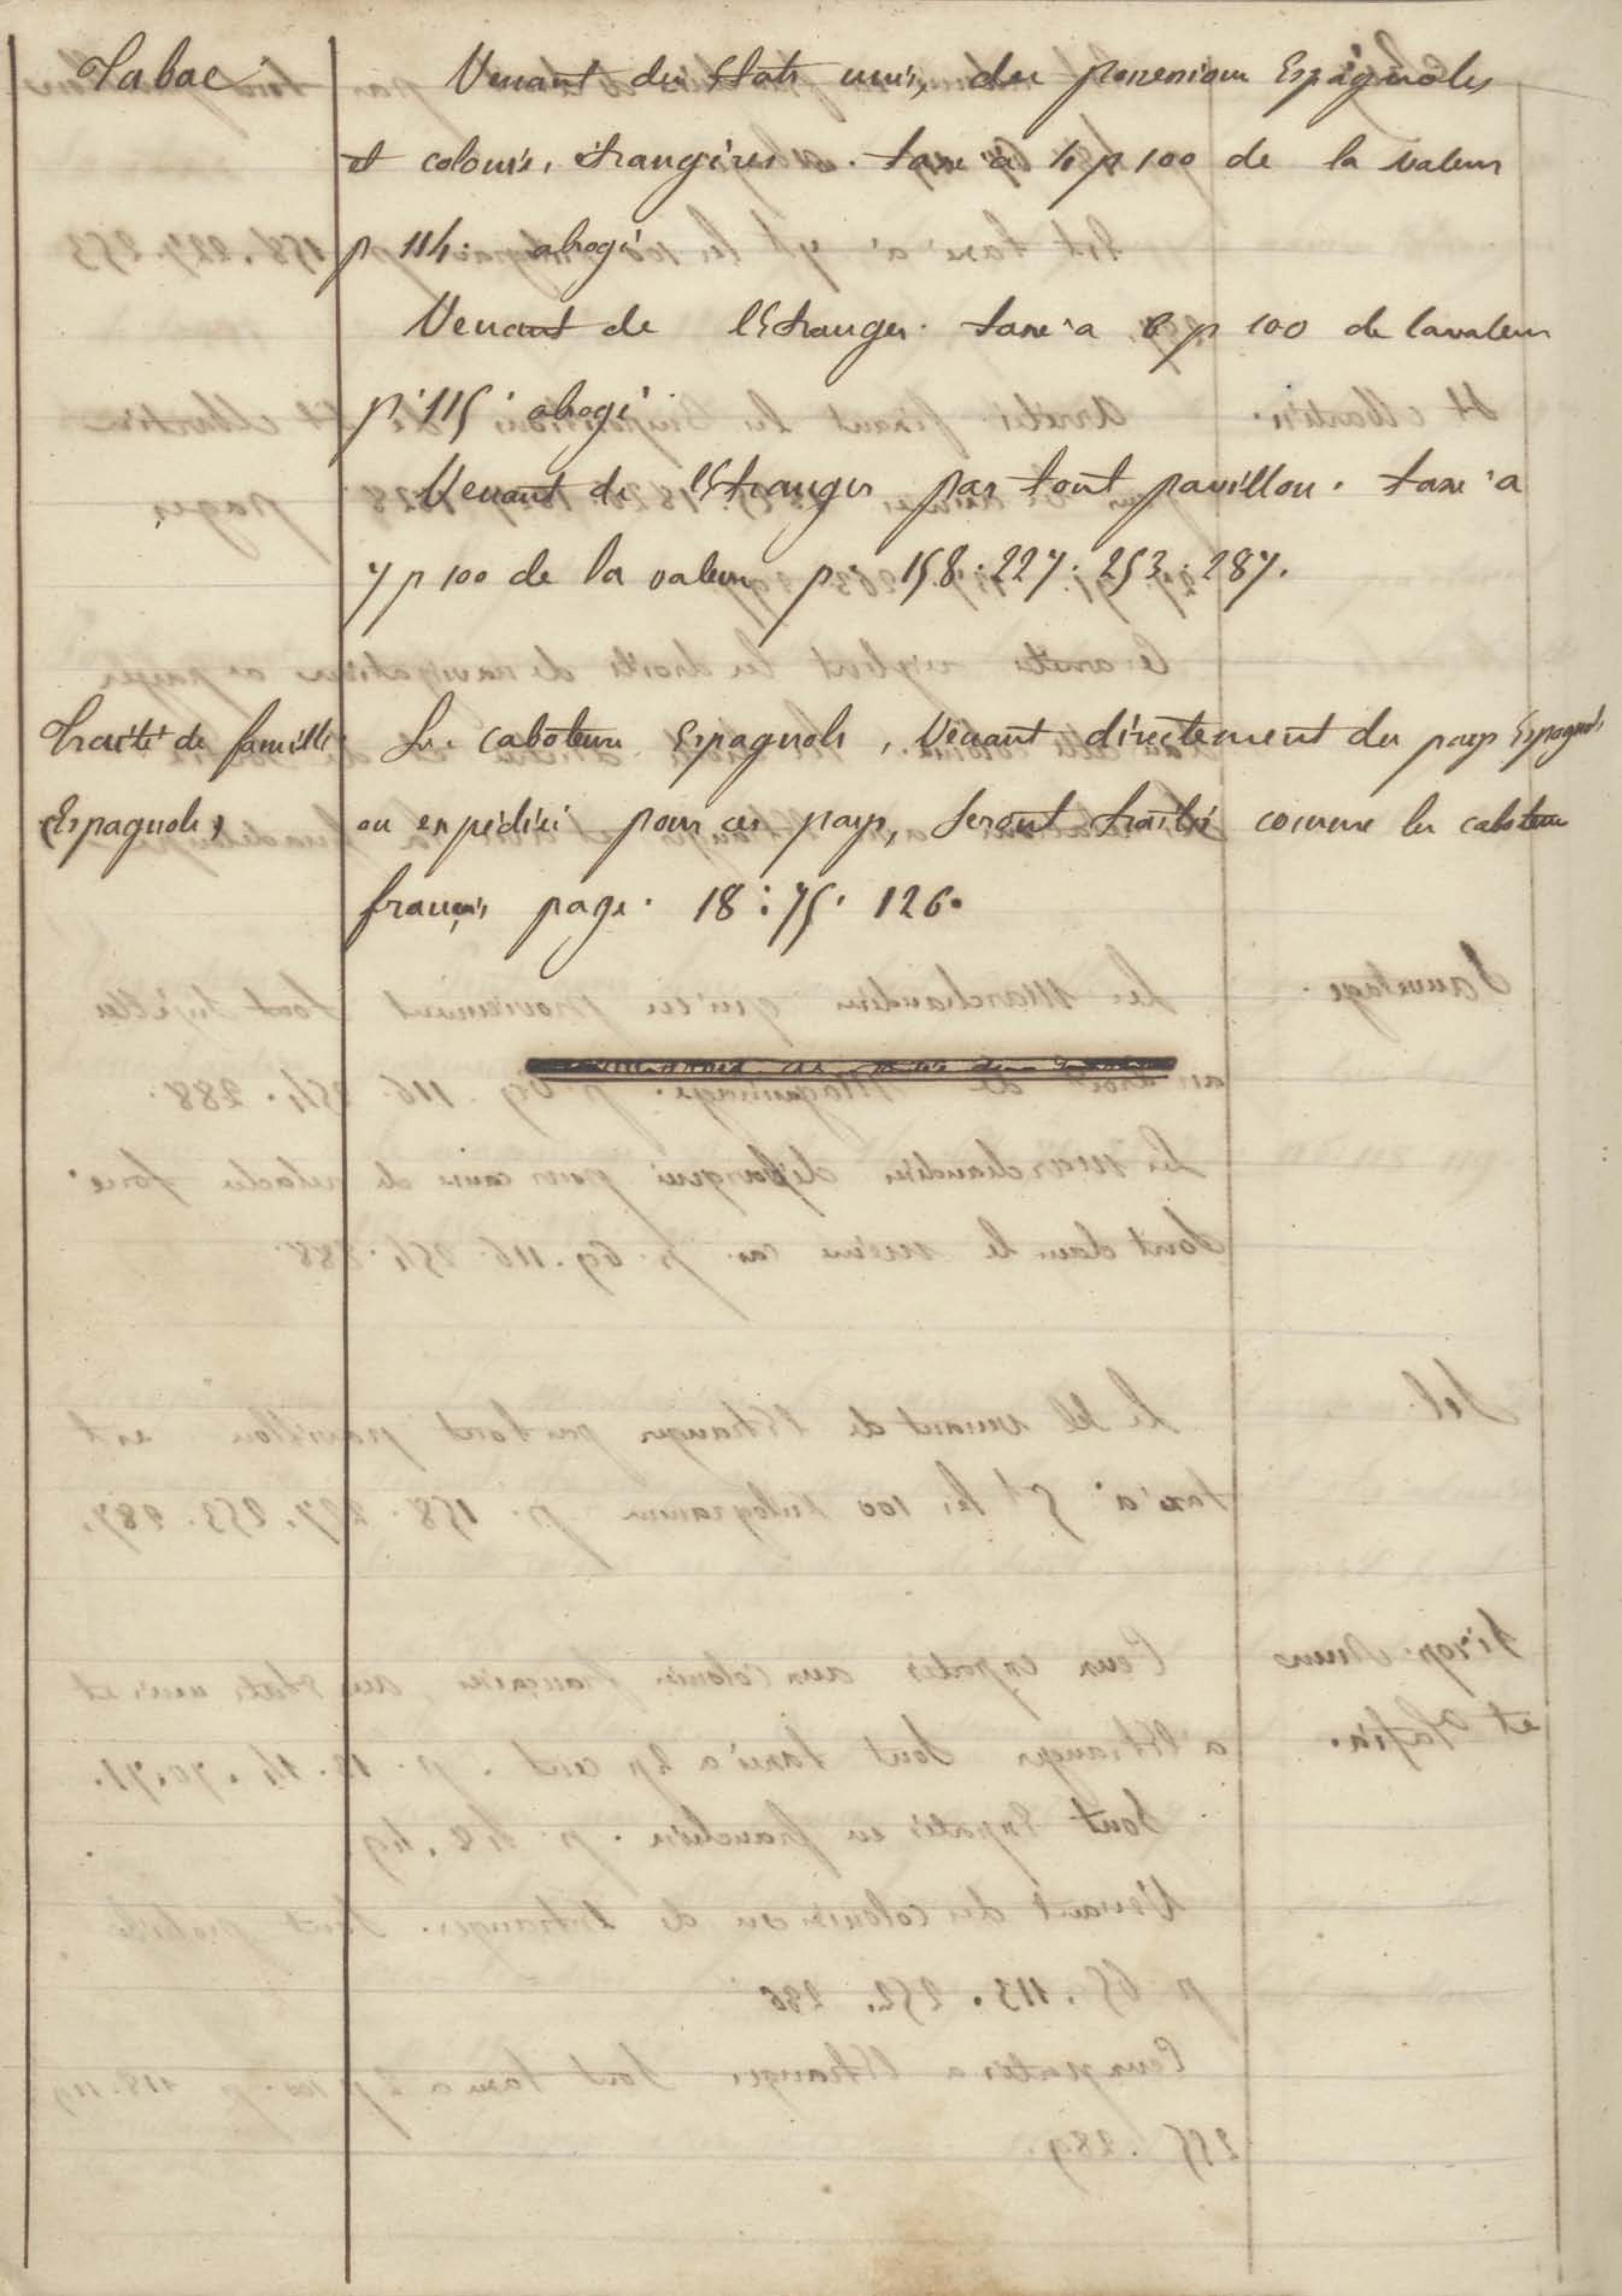 Tabac
Venant des Etats unis, des possessions Espagnoles
et colonies étrangères. taxé à 4 p 100 de la valeur
p 114. abrogé
Venant de l'Etranger. taxé a p 100 de la valeur
p. 115. abrogé
Venant de l'Etranger par tout pavillon. taxé a
7 p 100 de la valeur p. 158. 227. 253. 287.
Traité de famille
(Espagnols)
Les caboteurs Espagnols, Venant directement des pays Espagnols
ou expédiés pour ces pays, Seront traités comme les caboteurs
français page. 18: 75. 126.